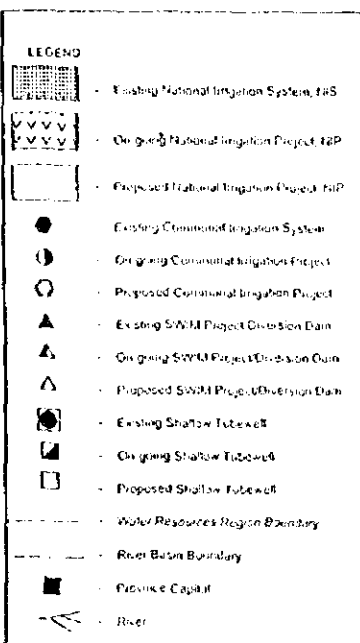 LEGEND
- Existing National Irrigation System, NIS
- On going National Irrigation Project, NIP
- Proposed National Irrigation Project, NIP
- Existing Communal Irrigation System
- On going Communal Irrigation Project
- Proposed Communal Irrigation Project
- Existing SWIM Project Diversion Dam
- On going SWIM Project/Diversion Dam
- Proposed SWIM Project/Diversion Dam
- Existing Shallow Tubewell
- On going Shallow Tubewell
- Proposed Shallow Tubewell
- Water Resources Region Boundary
- River Basin Boundary
- Province Capital
- River